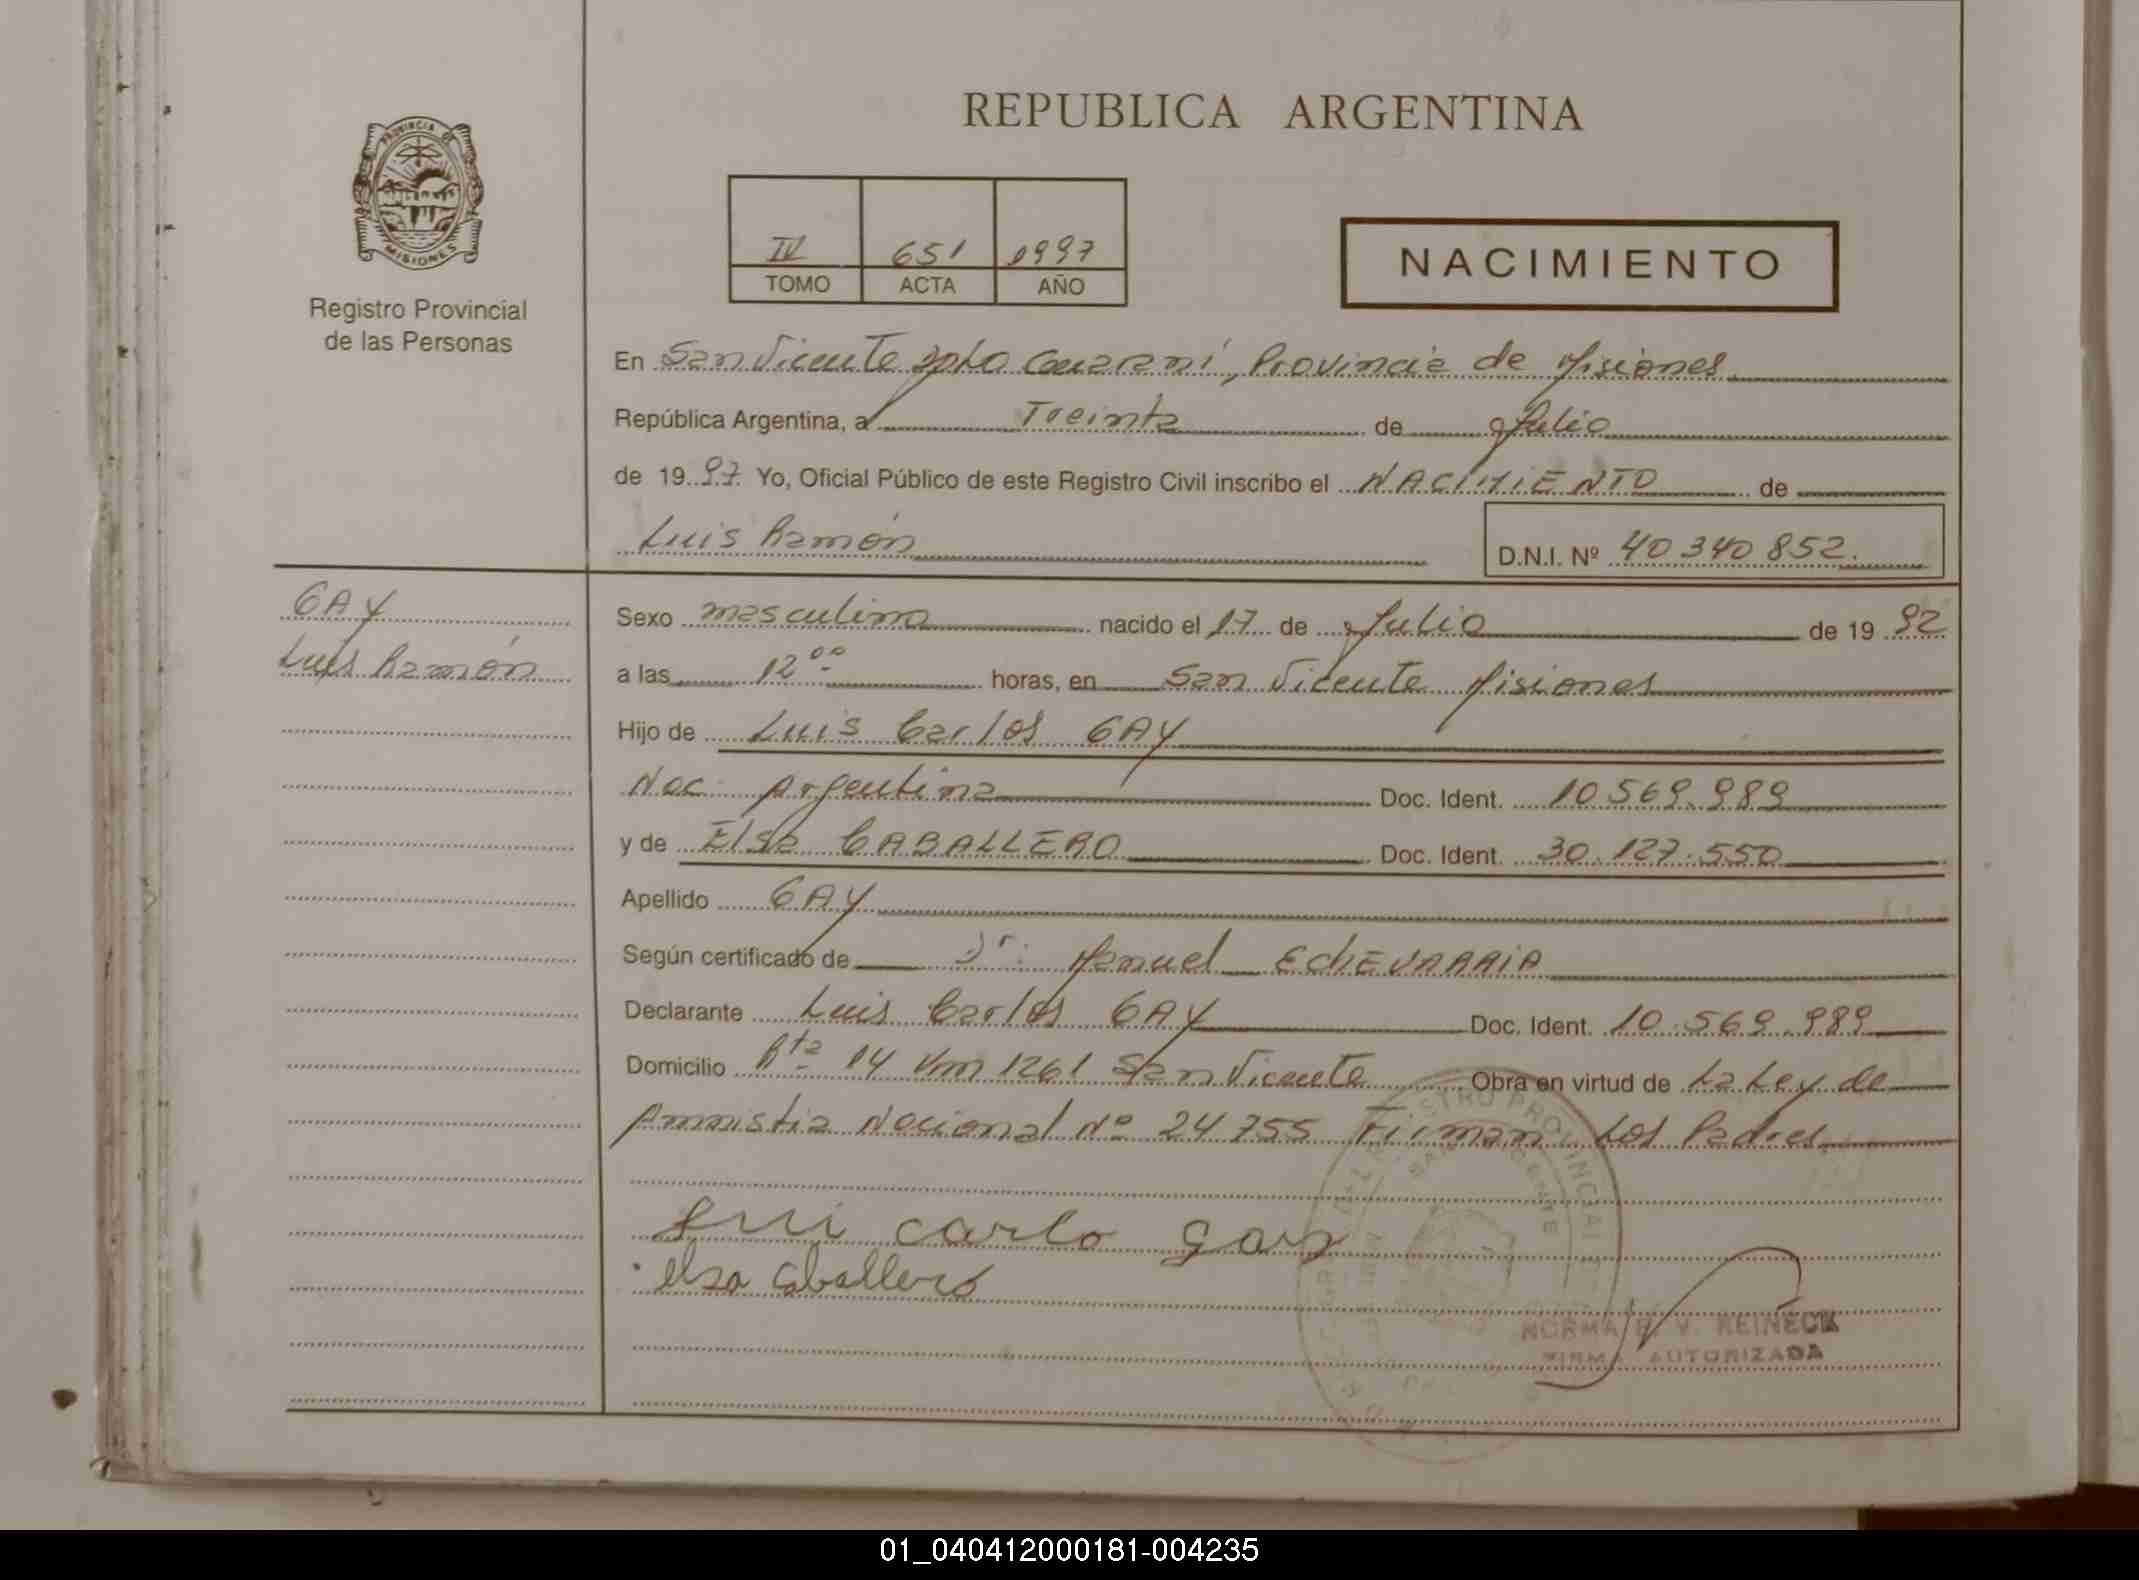 PROVINCIA DE
MISIONES
Registro Provincial
de las Personas
REPUBLICA ARGENTINA
IV 651 1997
TOMO ACTA AÑO
NACIMIENTO
En San Vicente Dpto Guaraní, Provincia de Misiones
República Argentina, a Treinta de Julio
de 1997 Yo, Oficial Público de este Registro Civil inscribo el NACIMIENTO de
Luis Ramón D.N.I. Nº 40340852.
GAY
Luis Ramón
Sexo masculino nacido el 17 de Julio de 1992
a las 12⁰⁰ horas, en San Vicente Misiones
Hijo de Luis Carlos GAY
Nac. Argentina Doc. Ident. 10569.989
y de Elsa CABALLERO Doc. Ident. 30.127.550
Apellido GAY
Según certificado de Dr. Manuel EChEVARRIA
Declarante Luis Carlos GAY Doc. Ident. 10.569.989
Domicilio Rta 14 Km 1261 San Vicente Obra en virtud de La Ley de
Amnistia Nacional Nº 24755 Firman Los Padres
Lui carlo gay
elsa Caballero
REGISTRO PROVINCIAL
SAN VICENTE
NORMA B. V. REINECK
FIRMA AUTORIZADA
01_040412000181-004235